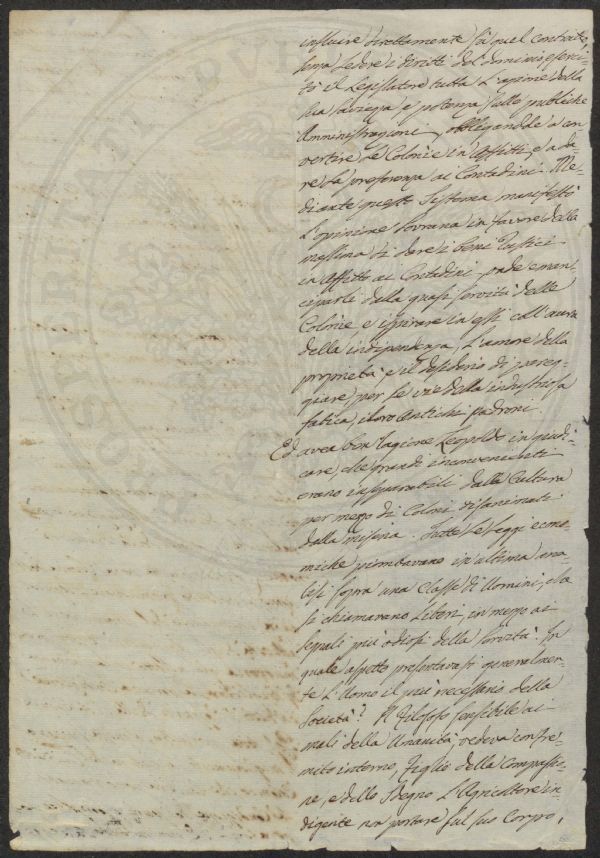 influire direttamente sù quel contratto,
senza ledere i diritti del dominio eserci-
tò il Legislatore tutta l'azione della
sua saviezza e potenza sulle pubbliche
Amministrazioni, obbligandole a con
vertire le Colonìe in Affitti, e a da-
re la preferenza ai Contadini. Me-
diante questo Sistema manifestò
l'opinione Sovrana in favore della
massima di dare i beni Rustici
in Affitto ai Contadini onde eman-
ciparli dalla quasi servitù delle
Colonìe, e ispirare in essi coll'aura
della indipendenza, l'amore della
proprietà, e il desiderio di pareg-
giare per le vie della industriosa
fatica, i loro antichi padroni.
Ed avea ben ragione Leopoldo in giudi-
care, che grandi inconvenienti
erano inseparabili dalla Cultura
per mezzo di Coloni disanimati
dalla miseria. Tutte le Leggi econo-
miche piombavano in ultima ana-
lisi sopra una Classe di Uomini, che
si chiamavano Liberi, in mezzo ai
segnali più odiosi della servitù. In
quale aspetto presentavasi generalmen-
te l'Uomo il più necessario della
Società? Il Filosofo sensibile ai
mali della Umanità, vedeva con fre-
mito interno, Figlio della Compassio-
ne, e dello Sdegno l'Agricoltore in-
digente non portare sul suo Corpo,